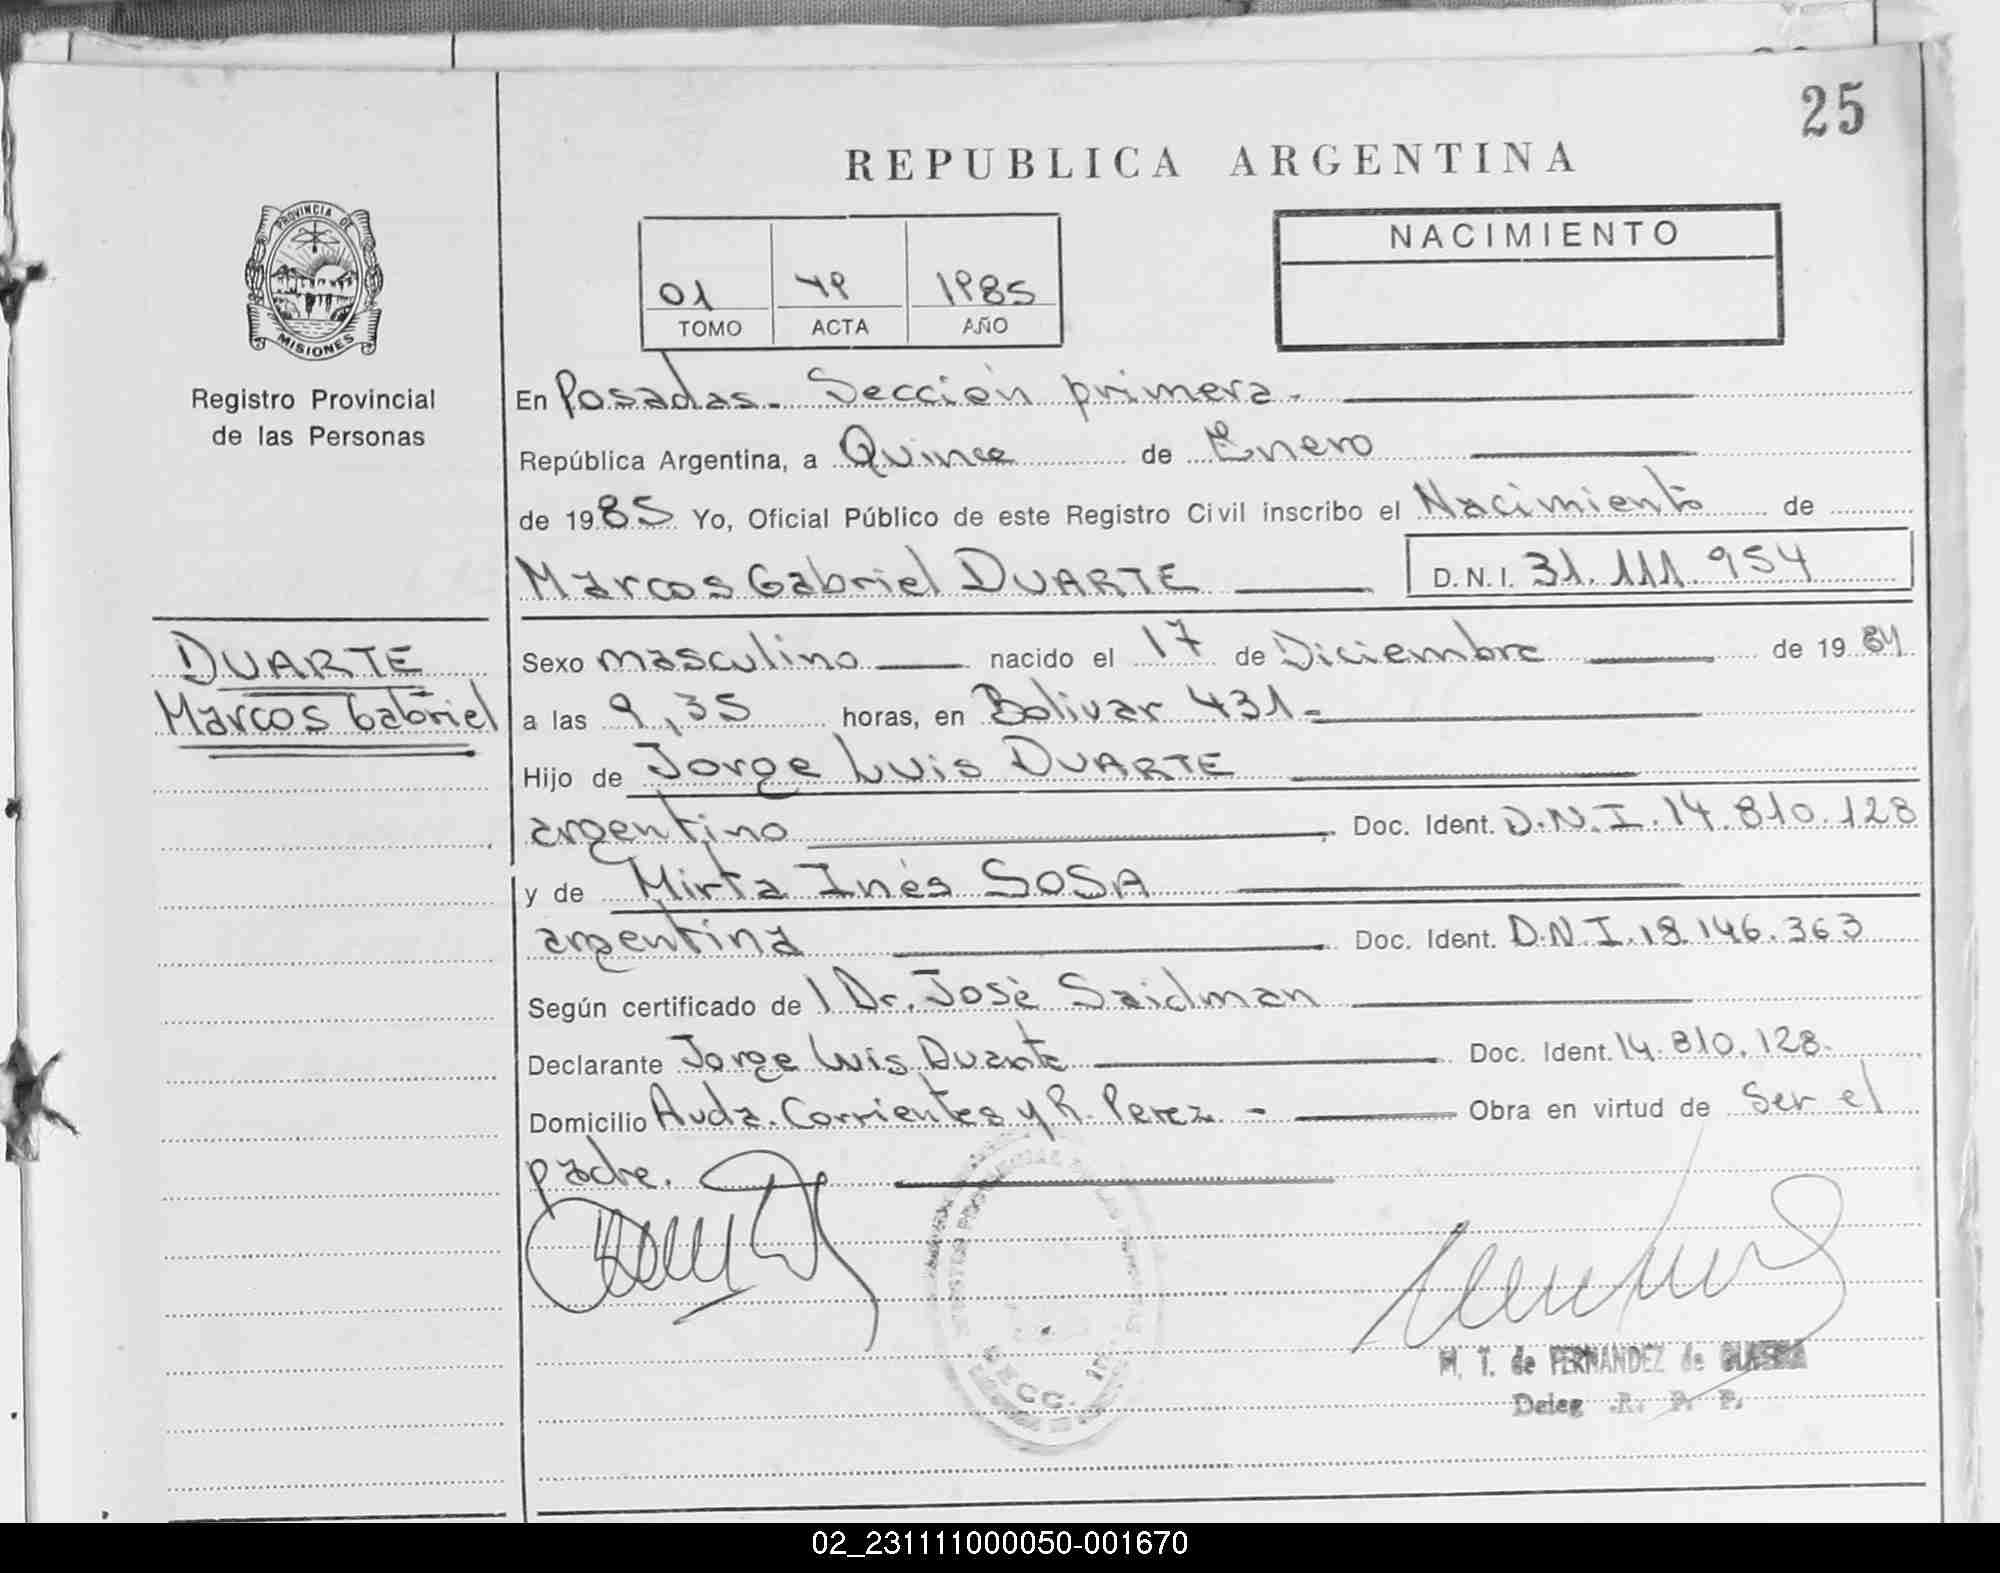 25
REPUBLICA ARGENTINA
PROVINCIA DE
MISIONES
Registro Provincial
de las Personas
NACIMIENTO
01 49 1985
TOMO ACTA AÑO
En Posadas. Sección primera.
República Argentina, a Quince de Enero
de 1985 Yo, Oficial Público de este Registro Civil inscribo el Nacimiento de
Marcos Gabriel DUARTE D.N.I. 31.111.954
DUARTE
Marcos Gabriel
Sexo masculino nacido el 17 de Diciembre de 1984
a las 9,35 horas, en Bolivar 431-
Hijo de Jorge Luis DUARTE
argentino Doc. Ident. D.N.I. 14.810.128
y de Mirta Inés SOSA
argentina Doc. Ident. D.N.I. 18.146.363
Según certificado de l Dr. José Saidman
Declarante Jorge Luis Duarte Doc. Ident. 14.810.128.
Domicilio Avda. Corrientes y R. Perez - Obra en virtud de Ser el
padre.
SECC.
M. T. de FERNANDEZ de
Deleg. R. P. P.
02_231111000050-001670